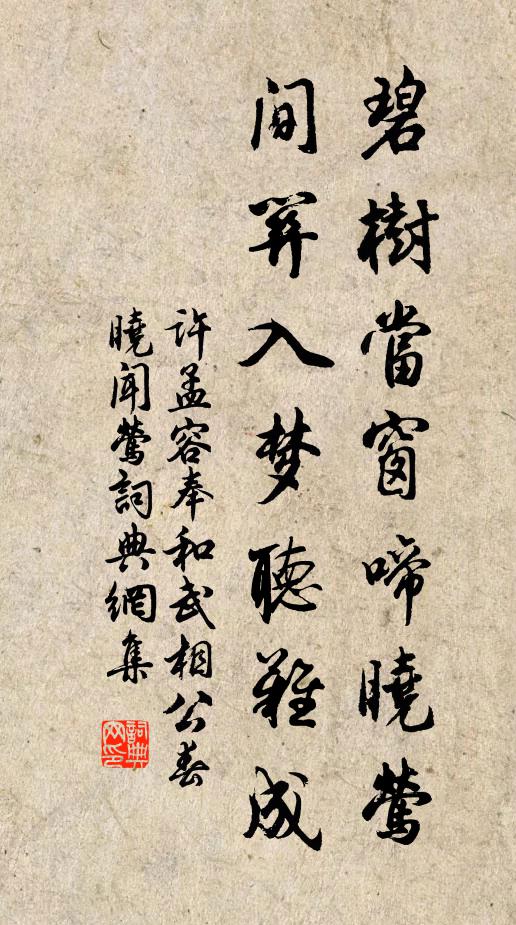 碧樹當窗啼曉鶯
間關入梦聽難成
許孟容奉和武相公春
曉聞鶯詞典網集
詞典网印